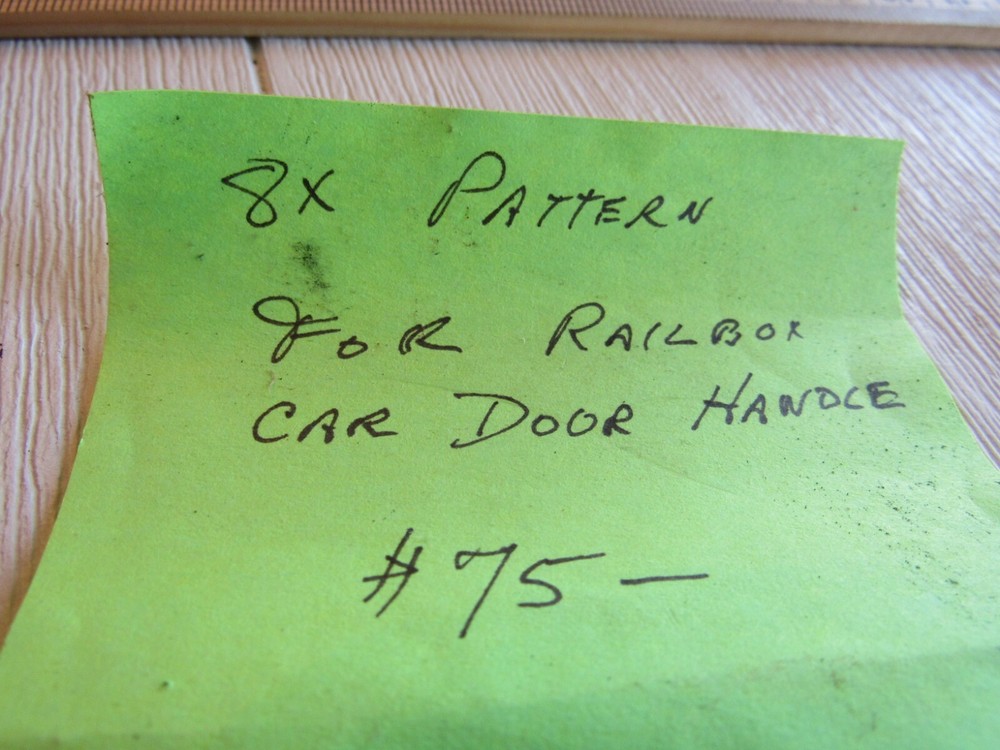 8X PATTERN
FOR RAILBOX
CAR DOOR HANDLE
#75—